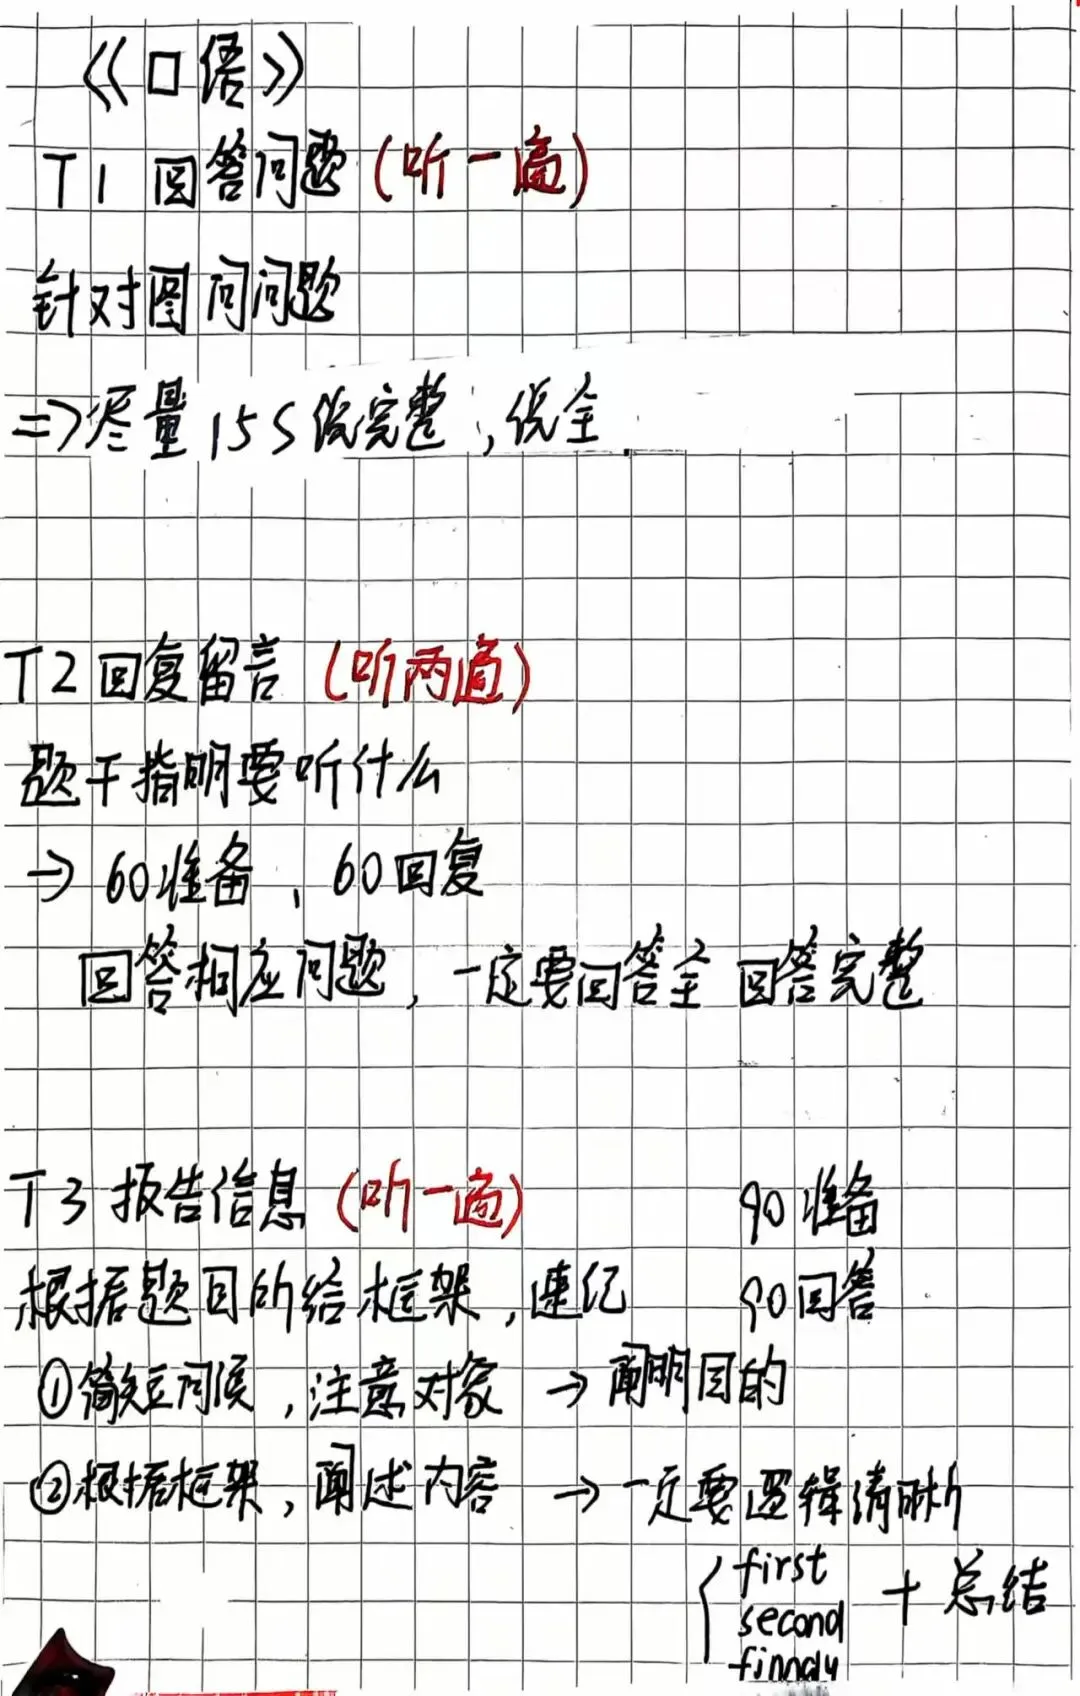 《口语》
T1 回答问题(听一遍)
针对图问问题
=> 尽量15S说完整,说全
T2 回复留言(听两遍)
题干指明要听什么
→ 60准备、60回复
回答相应问题,一定要回答全 回答完整
T3 报告信息(听一遍) 90准备
根据题目所给框架,速记 90回答
①简短问候,注意对象 → 阐明目的
②根据框架,阐述内容 → 一定要逻辑清晰
first
second + 总结
finnaly